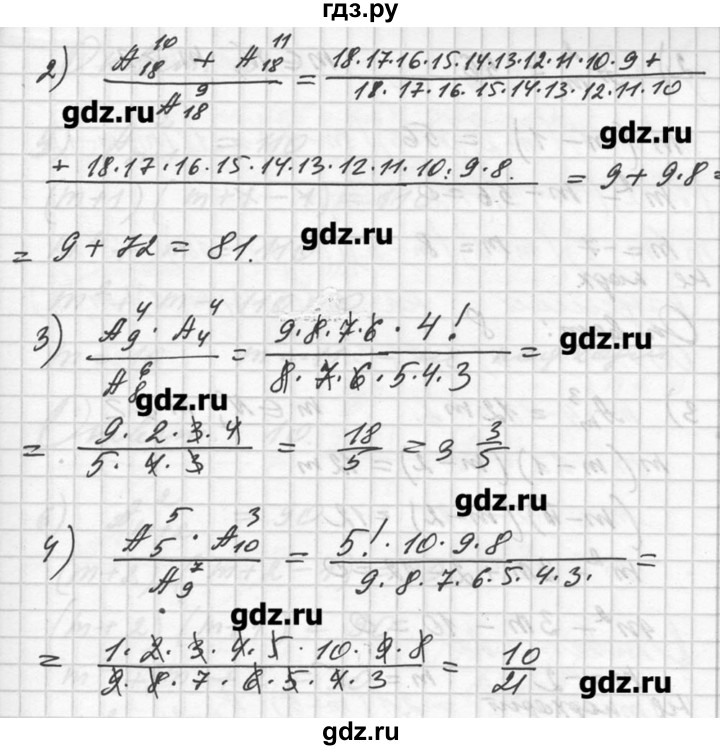 гдз.ру
2) (A₁₈¹⁰ + A₁₈¹¹) / A₁₈⁹ = (18·17·16·15·14·13·12·11·10·9 +) / (18·17·16·15·14·13·12·11·10)
gdz.ru
gdz.ru
+ 18·17·16·15·14·13·12·11·10·9·8. = 9 + 9·8 =
= 9 + 72 = 81.
gdz.ru
3) (A₉⁴ · A₄⁴) / A₈⁶ = (9·8·7·6 · 4!) / (8·7·6·5·4·3) =
gdz.ru
gdz.ru
= (9·2·3·4) / (5·4·3) = 18/5 = 3 3/5
gdz.ru
4) (A₅⁵ · A₁₀³) / A₉⁷ = (5! · 10·9·8) / (9·8·7·6·5·4·3.) =
gdz.ru
= (1·2·3·4·5·10·9·8) / (9·8·7·6·5·4·3) = 10/21
gdz.ru
gdz.ru